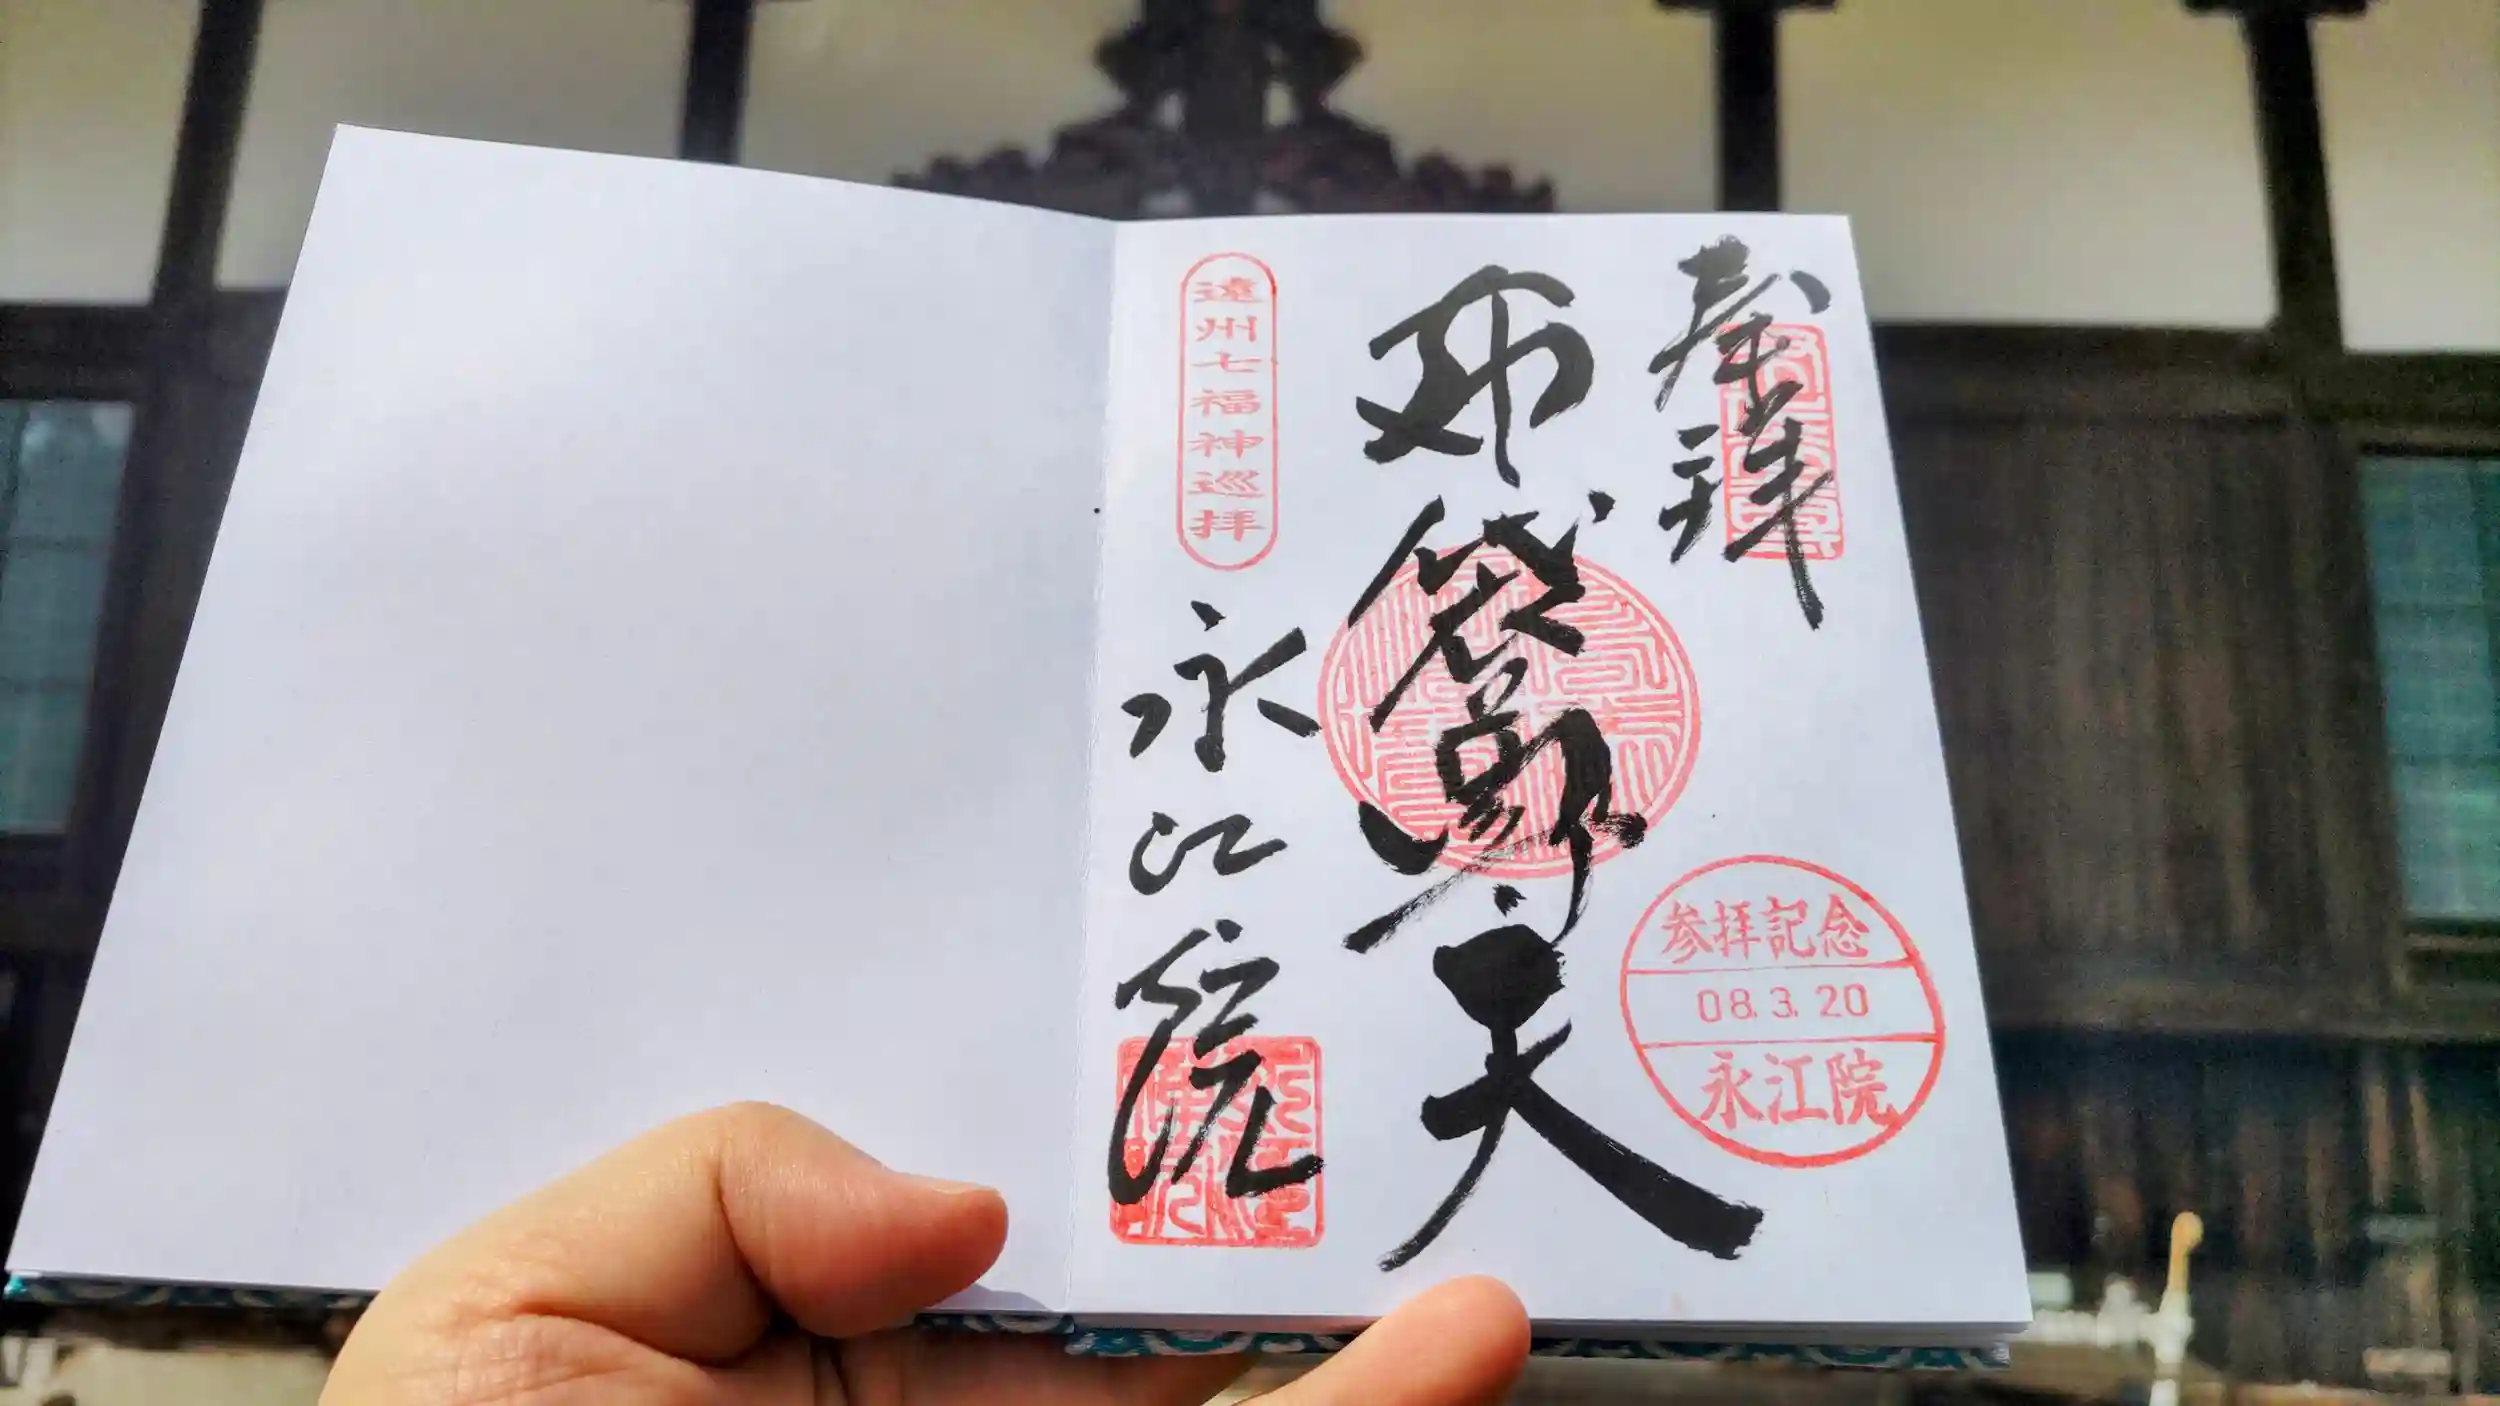 奉拝
布袋尊天
遠州七福神巡拝
永江院
参拝記念
08.3.20
永江院